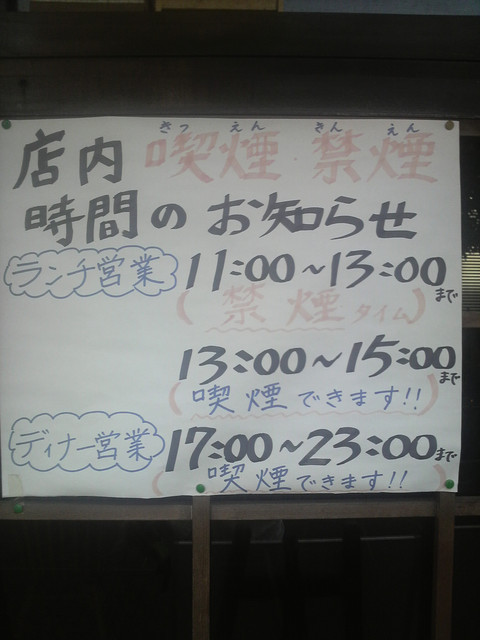 きつ えん きん えん
店内 喫煙 禁煙
時間の お知らせ
ランチ営業 11:00~13:00まで
(禁煙タイム)
13:00~15:00まで
(喫煙できます!!)
ディナー営業 17:00~23:00まで
(喫煙できます!!)